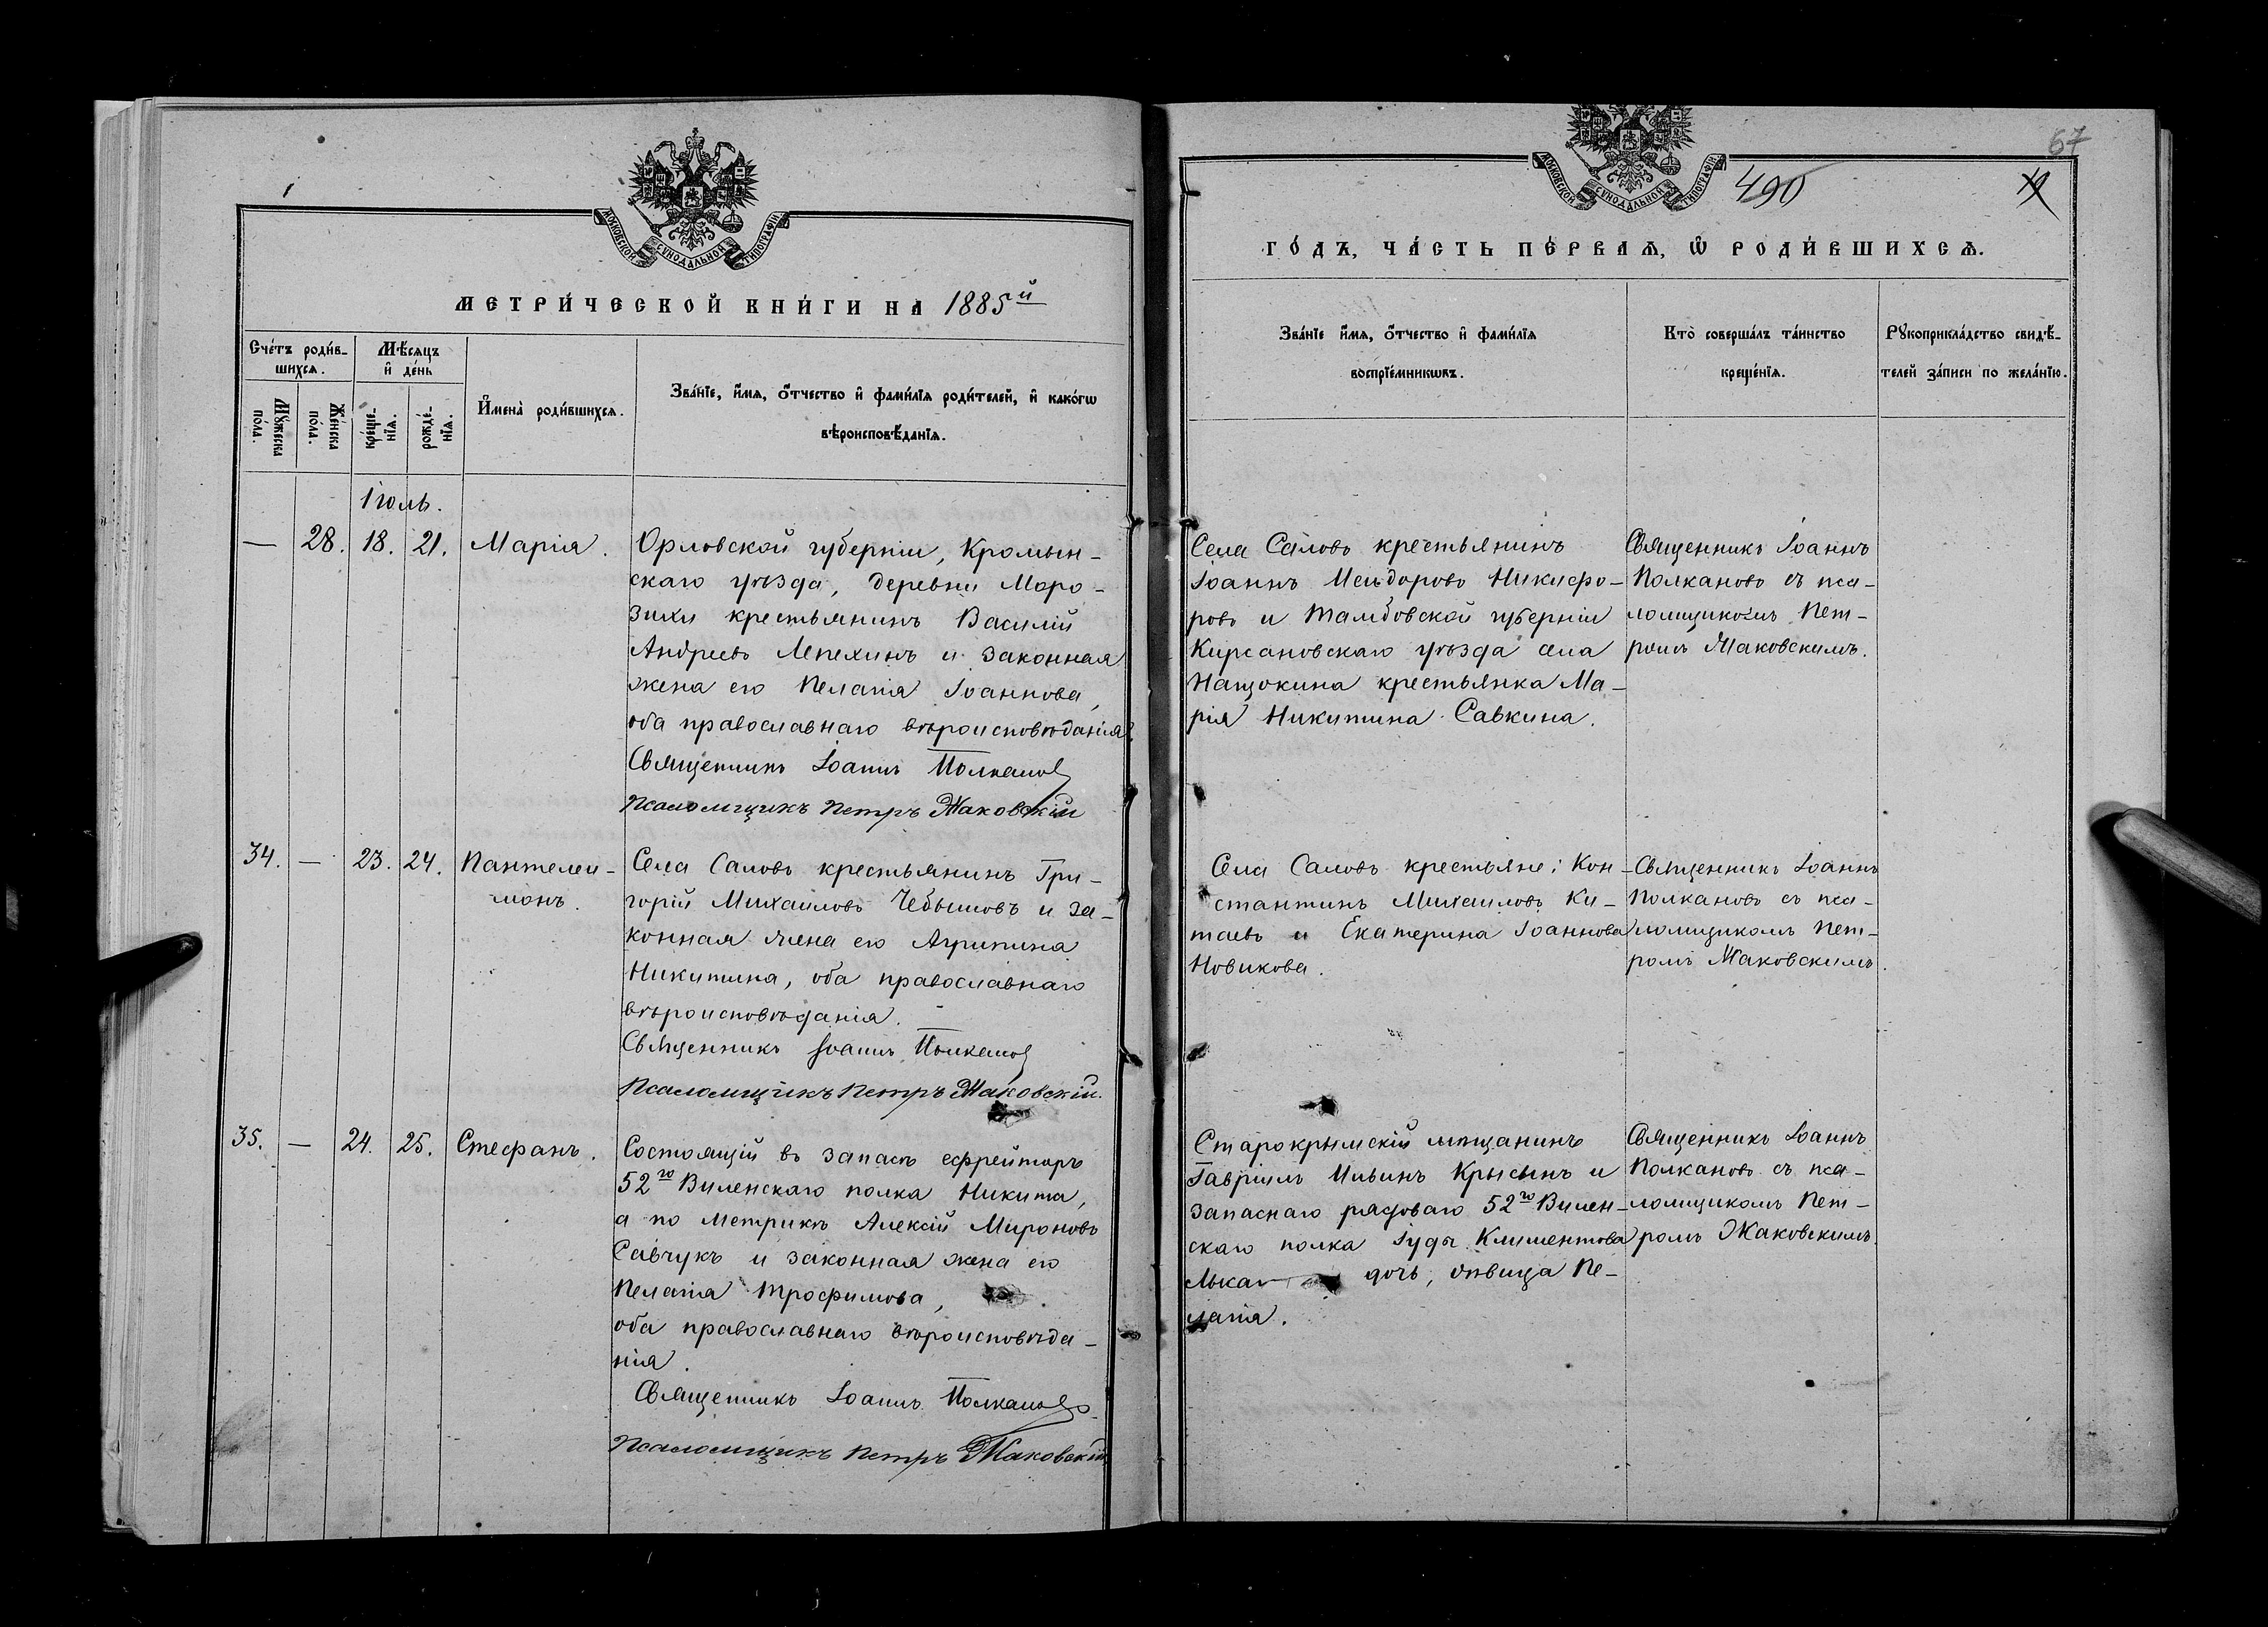 МОСКОВСКОЙ СѴНОДАЛЬНОЙ ТИПОГРАФІИ
МЕТРИ́ЧЕСКОЙ КНИ́ГИ НА 1885й
Сче́тъ роди́в-
шихсѧ.
Мꙋ́жеска
по́ла.
Же́нска
по́ла.
Мѣ́сѧцъ
и҆ де́нь
креще́-
нїѧ.
рожде́-
нїѧ.
И҆мена̀ роди́вшихсѧ.
Зва́нїе, и҆́мѧ, ѻ҆́тчество и҆ фами́лїѧ роди́телей, и҆ како́гѡ
вѣроисповѣ́данїѧ.
Іюль.
— 28. 18. 21. Марія.
Орловской губерніи, Кромын-
скаго уѣзда, деревни Моро-
зихи крестьянинъ Василій
Андреевъ Лепехинъ и законная
жена его Пелагія Іоаннова,
оба православнаго вѣроисповѣданія.
Священникъ Іоаннъ Полкановъ
Псаломщикъ Петръ Жаковскій
34. — 23. 24. Пантелеи-
монъ.
Села Саловъ крестьянинъ Гри-
горій Михаиловъ Чебышовъ и за-
конная жена его Агрипина
Никитина, оба православнаго
вѣроисповѣданія.
Священникъ Іоаннъ Полкановъ
Псаломщикъ Петръ Жаковскій.
35. — 24. 25. Стефанъ.
Состоящій въ запасѣ ефрейторъ
52го Виленскаго полка Никита,
а по метрикѣ Алексій Мироновъ
Савчукъ и законная жена его
Пелагія Трофимова,
оба православнаго вѣроисповѣда-
нія.
Священникъ Іоаннъ Полкановъ
Псаломщикъ Петръ Жаковскій
67
МОСКОВСКОЙ СѴНОДАЛЬНОЙ ТИПОГРАФІИ
490
ГО́ДЪ, ЧА́СТЬ ПЕ́РВАѦ, Ѡ҆ РОДИ́ВШИХСѦ.
Зва́нїе и҆́мѧ, ѻ҆́тчество и҆ фами́лїѧ
воспрїе́мникѡвъ.
Кто̀ соверша́лъ та́инство
креще́нїѧ.
Рꙋкоприкла́дство свидѣ́-
телей за́писи по жела́нїю.
Села Саловъ крестьянинъ
Іоаннъ Исидоровъ Никифо-
ровъ и Тамбовской губерніи
Кирсановскаго уѣзда села
Нащокина крестьянка Ма-
рія Никитина Савкина.
Священникъ Іоаннъ
Полкановъ съ пса-
ломщикомъ Пет-
ромъ Жаковскимъ.
Села Саловъ крестьяне: Кон-
стантинъ Михаиловъ Ки-
таевъ и Екатерина Іоаннова
Новикова.
Священникъ Іоаннъ
Полкановъ съ пса-
ломщикомъ Пет-
ромъ Жаковскимъ.
Старокрымскій мѣщанинъ
Гавріилъ Ильинъ Крысынъ и
запаснаго рядоваго 52го Вилен-
скаго полка Іуды Климентова
дочь, дѣвица Пе-
лагія.
Священникъ Іоаннъ
Полкановъ съ пса-
ломщикомъ Пет-
ромъ Жаковскимъ.